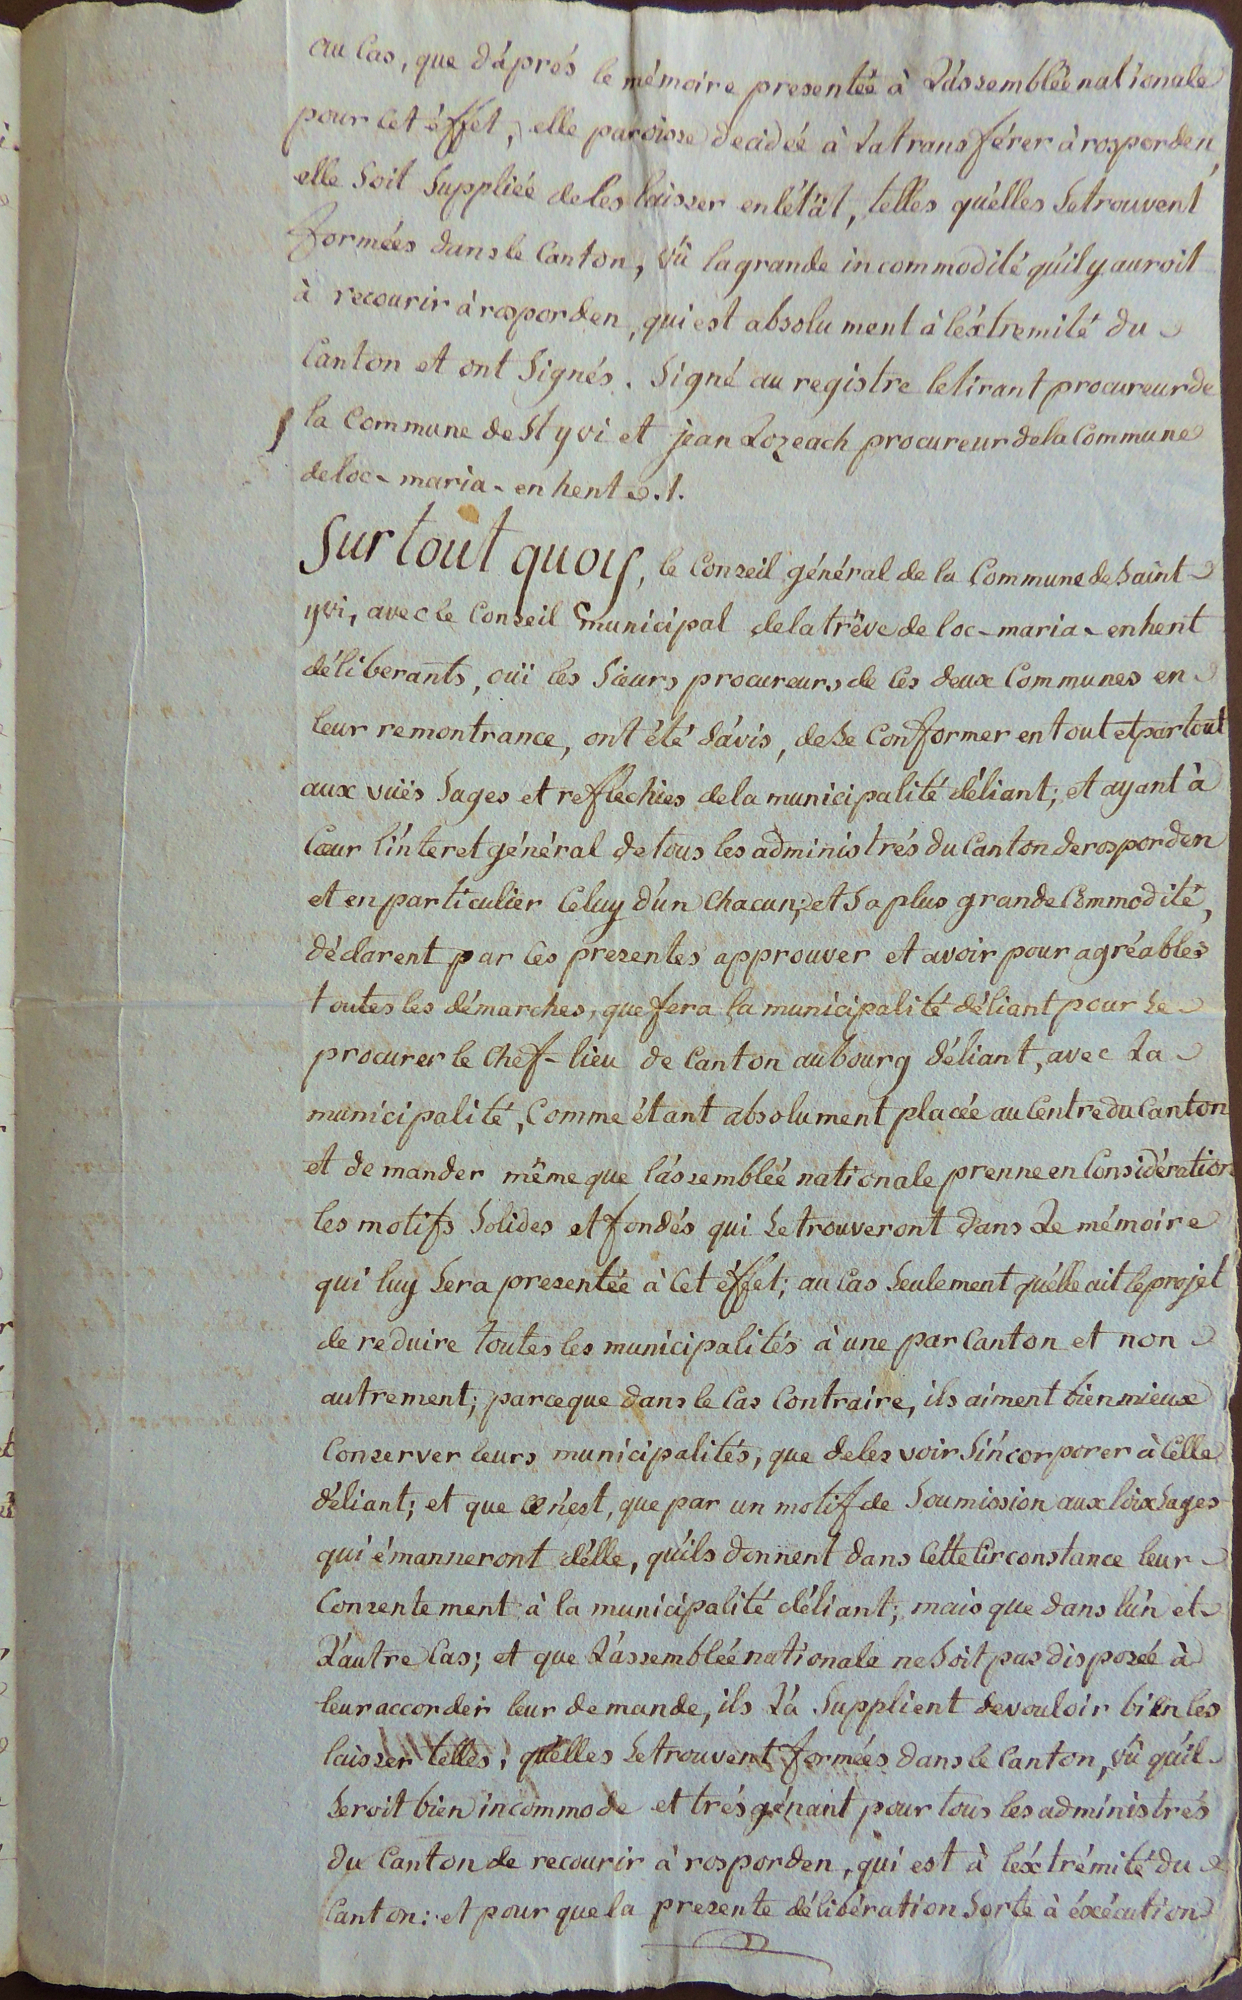 au Cas, que d'áprés le mémoire presentée à L'assemblée nationale
pour cet éffet, elle paroisse decidée à La transférer à rosporden,
elle Soit Suppliée de les laisser en l'état, telles qu'elles Se trouvent
formées dans le Canton, vû la grande incommodité qu'il y auroit
à recourir à rosporden, qui est absolument à l'éxtremité du
Canton et ont Signés. Signé au registre le tirant procureur de
la Commune de St yvi et jean Lozeach procureur de la Commune
de loc-maria-en hent ./.
Sur tout quoy, le Conseil général de la Commune de Saint
yvi, avec le Conseil municipal de la trêve de loc-maria-en hent
déliberants, ouï les Sieurs procureurs de ces deux Communes en
leur remontrance, ont été d'avis, de Se Conformer en tout et par tout
aux vuës Sages et refléchies de la municipalité d'éliant; et ayant à
Cœur l'interet général de tous les administrés du Canton de rosporden
et en particulier Celuy d'un Chacun; et Sa plus grande Commodité,
déclarent par Ces presentes approuver et avoir pour agréables
toutes les démarches, que fera la municipalité d'éliant pour Se
procurer le Chef-lieu de Canton au bourg d'éliant, avec La
municipalité, Comme étant absolument placée au Centre du Canton
et demander même que l'assemblée nationale prenne en Considération
les motifs Solides et fondés qui Se trouveront dans Le mémoire
qui luy Sera presentée à Cet éffet; au Cas Seulement qu'elle ait le projet
de reduire toutes les municipalités à une par Canton et non
autrement; parceque dans le Cas Contraire, ils aiment bien mieux
Conserver leurs municipalités, que de les voir S'incorporer à Celle
d'éliant; et que ce n'est, que par un motif de Soumission aux loix Sages
qui émanneront d'elle, qu'ils donnent dans Cette Circonstance leur
Consentement à la municipalité d'éliant; mais que dans l'un et
L'autre Cas; et que L'assemblée nationale ne Soit pas disposée à
leur accorder leur demande, ils La Supplient de vouloir bien les
laisser telles, qu'elles Se trouvent formées dans le Canton, vû qu'il
Seroit bien incommode et trés gênant pour tous les administrés
du Canton de recourir à rosporden, qui est à l'éxtrémité du
Canton: et pour que la presente délibération Sorte à éxécution